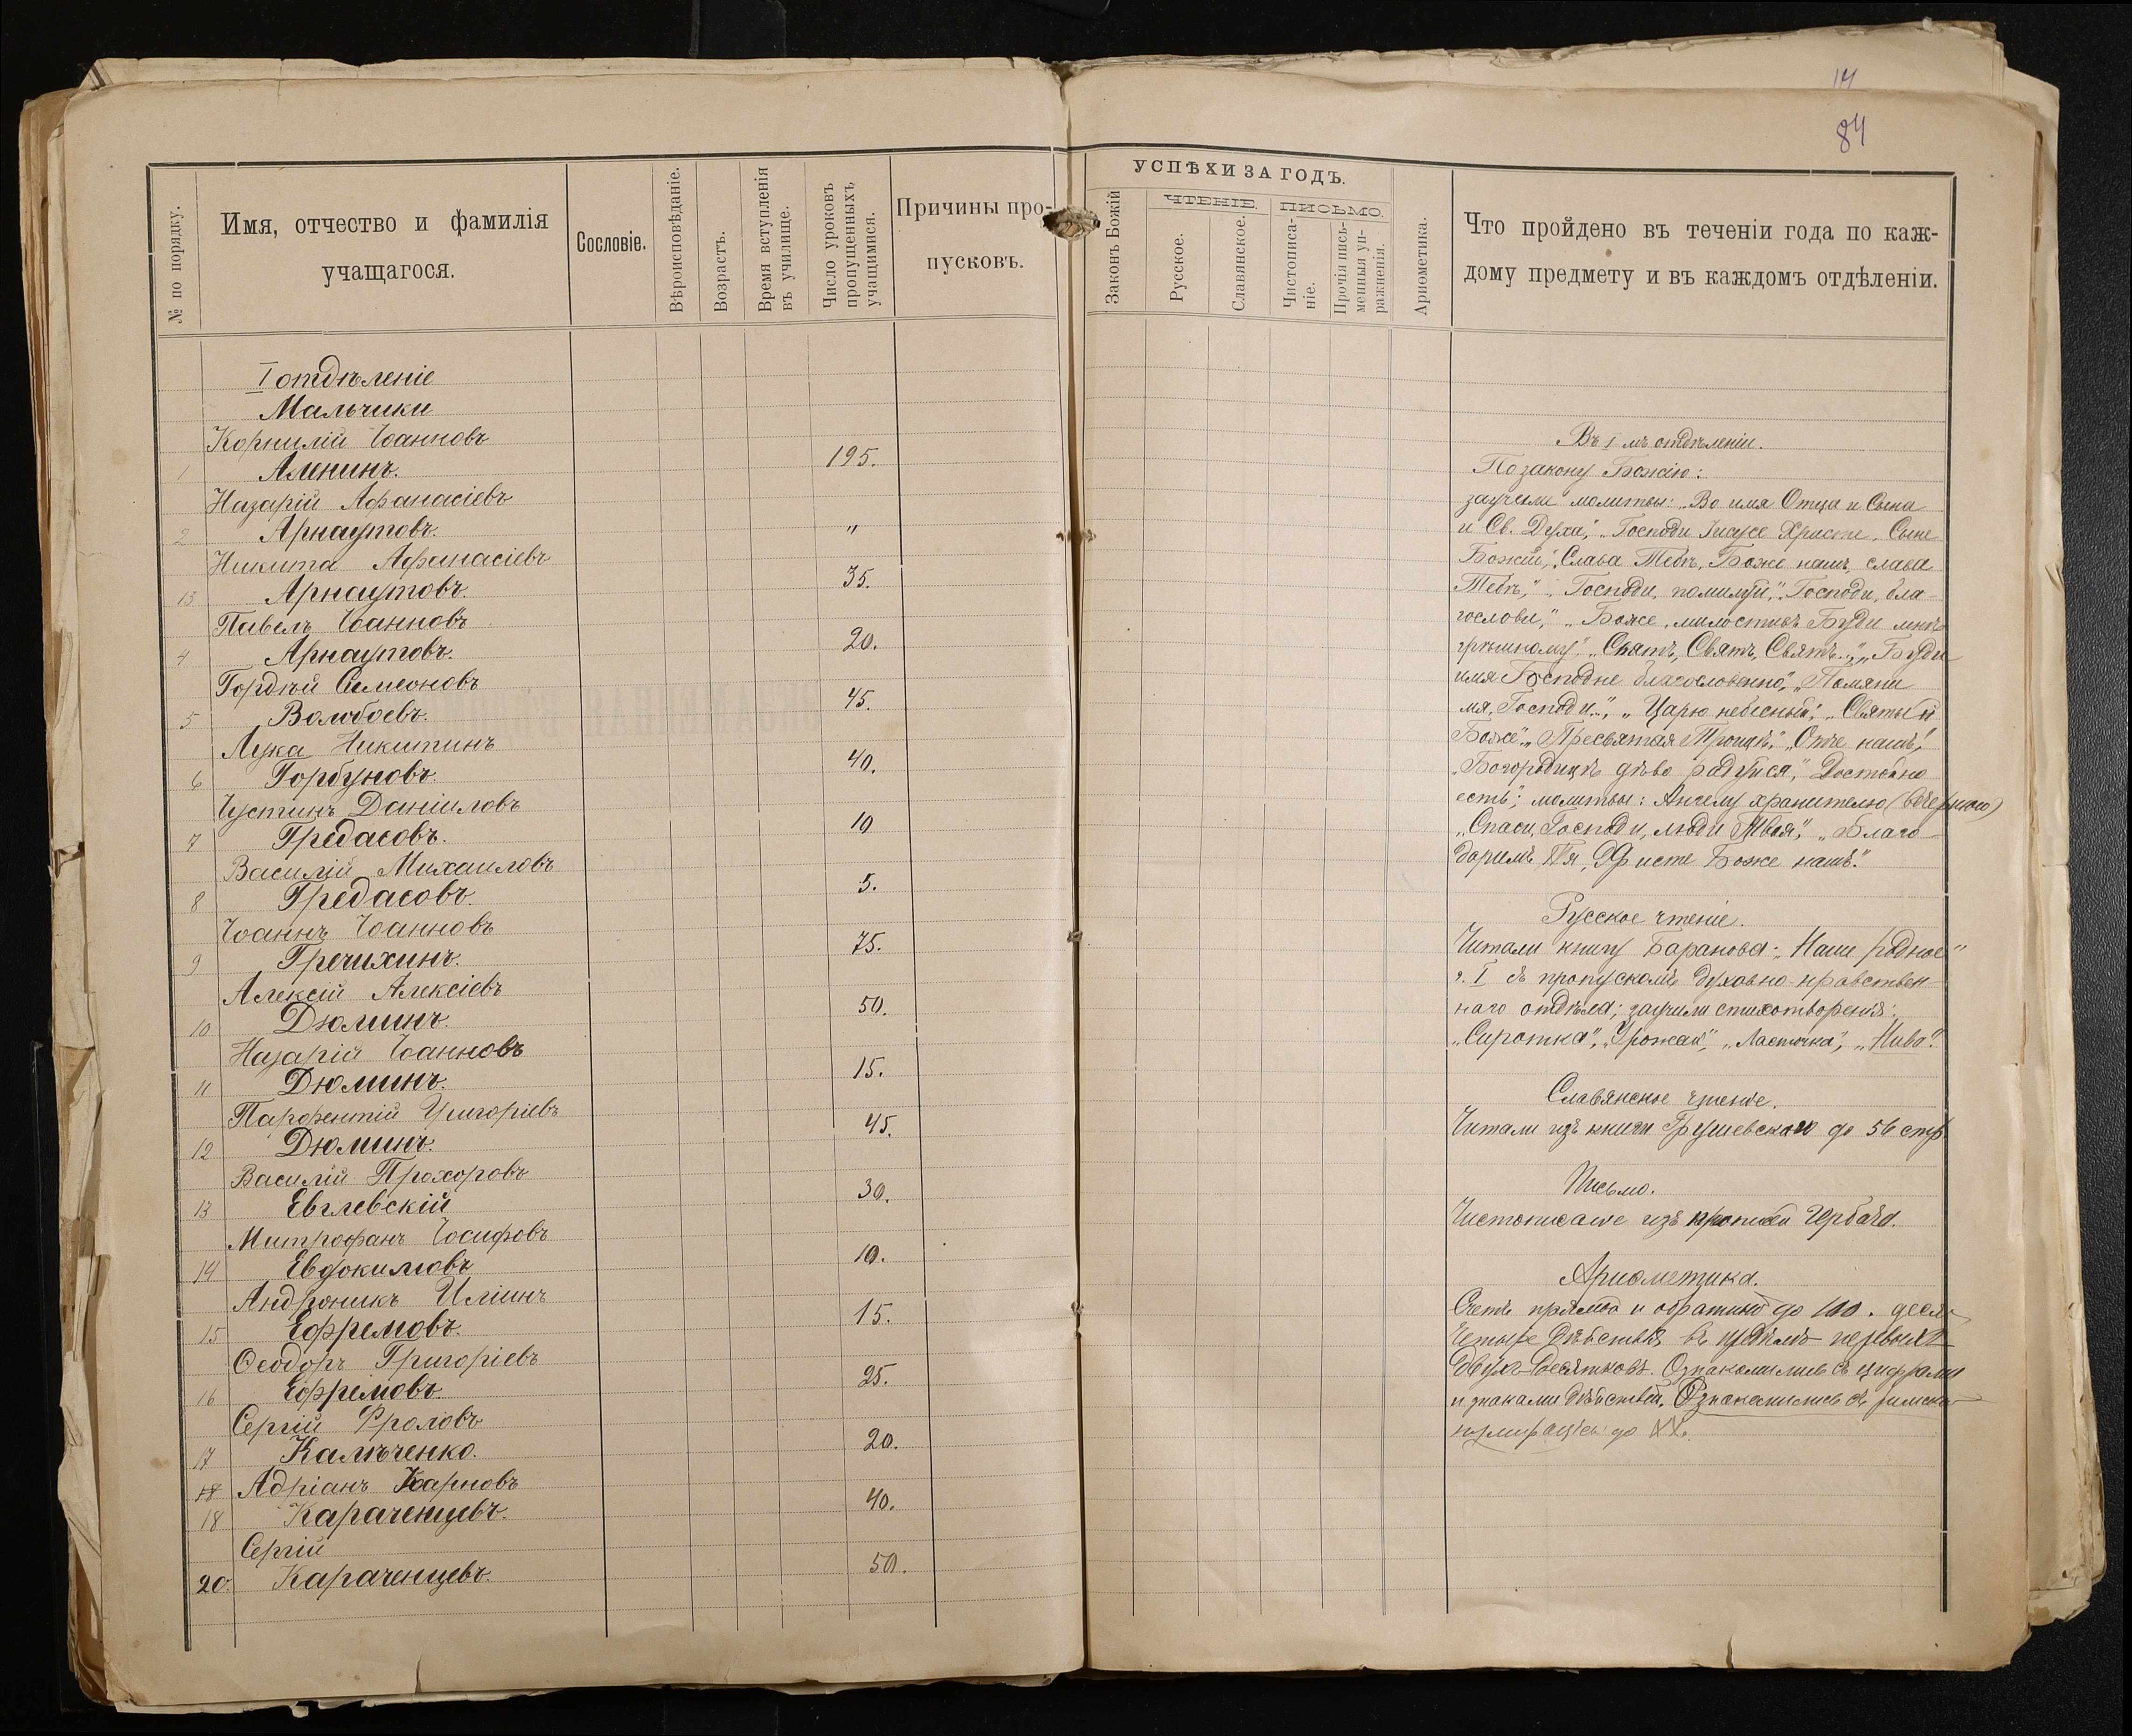 14
84
№ по порядку.
Имя, отчество и фамилія
учащагося.
Сословіе.
Вѣроисповѣданіе.
Возрастъ.
Время вступленія
въ училище.
Число уроковъ
пропущенныхъ
учащимися.
Причины про-
пусковъ.
УСПѢХИ ЗА ГОДЪ.
Законъ Божій
ЧТЕНІЕ.
Русское.
Славянское.
ПИСЬМО.
Чистописа-
ніе.
Прочія пись-
менныя уп-
ражненія.
Ариѳметика.
Что пройдено въ теченіи года по каж-
дому предмету и въ каждомъ отдѣленіи.
I отдѣленіе
Мальчики
Корнилій Іоанновъ
1 Аленинъ. 195.
Назарій Афанасіевъ
2 Арнаутовъ. "
Никита Афанасіевъ
13 Арнаутовъ. 35.
Павелъ Іоанновъ
4 Арнаутовъ. 20.
Гордѣй Симеоновъ
5 Волобоевъ. 45.
Лука Никитинъ
6 Горбуновъ. 40.
Іустинъ Даніиловъ
7 Гредасовъ. 10
Василій Михаиловъ
8 Гредасовъ. 5.
Іоаннъ Іоанновъ
9 Гречихинъ. 75.
Алексій Алексіевъ
10 Дюминъ. 50.
Назарій Іоанновъ
11 Дюминъ. 15.
Парфентій Григоріевъ
12 Дюминъ. 45.
Василій Прохоровъ
13 Евглевскій 30.
Митрофанъ Іосифовъ
14 Евдокимовъ 10.
Андроникъ Иліинъ
15 Ефремовъ. 15.
Ѳеодоръ Григоріевъ
16 Ефремовъ. 25.
Сергій Фроловъ
17 Калиъченко. 20.
18 Адріанъ Карповъ
18 Караченцевъ. 40.
Сергій
20. Караченцевъ. 50.
Въ I мъ отдѣленіи.
По закону Божію:
заучили молитвы: „Во имя Отца и Сына
и Св. Духа," „Господи Іисусе Христе, Сыне
Божій," „Слава Тебѣ, Боже нашъ, слава
Тебѣ," „Господи, помилуй," „Господи, бла-
гослови," „Боже, милостивъ буди мнѣ
грѣшному," „Святъ, Святъ, Святъ..," „Буди
имя Господне благословенно," „Помяни
мя, Господи..", „Царю небесный," „Святый
Боже" „Пресвятая Троице," „Отче нашъ,"
„Богородице дѣво радуйся," Достойно
есть"; молитвы: Ангелу хранителю (вечернюю)
„Спаси, Господи, люди Твоя," „Благо-
даримъ Тя, Христе Боже нашъ."
Русское чтеніе.
Читали книгу Баранова: „Наше родное"
ч. I съ пропускомъ духовно-нравствен-
наго отдѣла; заучили стихотворенія:
„Сиротка", „Урожай", „Ласточка", „Нива".
Славянское чтеніе.
Читали изъ книги Грушевскаго до 56 стр.
Письмо.
Чистописаніе изъ прописей Гербача.
Ариѳметика.
Счетъ прямой и обратный до 100. десят
Четыре дѣйствія, въ предѣлѣ первыхъ
двухъ десятковъ. Ознакомились съ цифрами
и знаками дѣйствій. Ознакомились съ римской
нумераціей до XX.